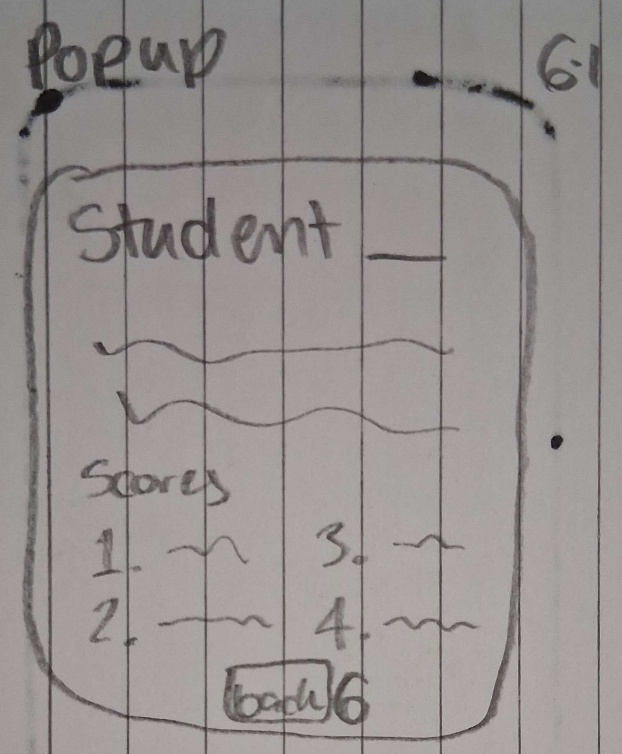 Popup 6.1
Student __
Scores
1. 3.
2. 4.
back 6